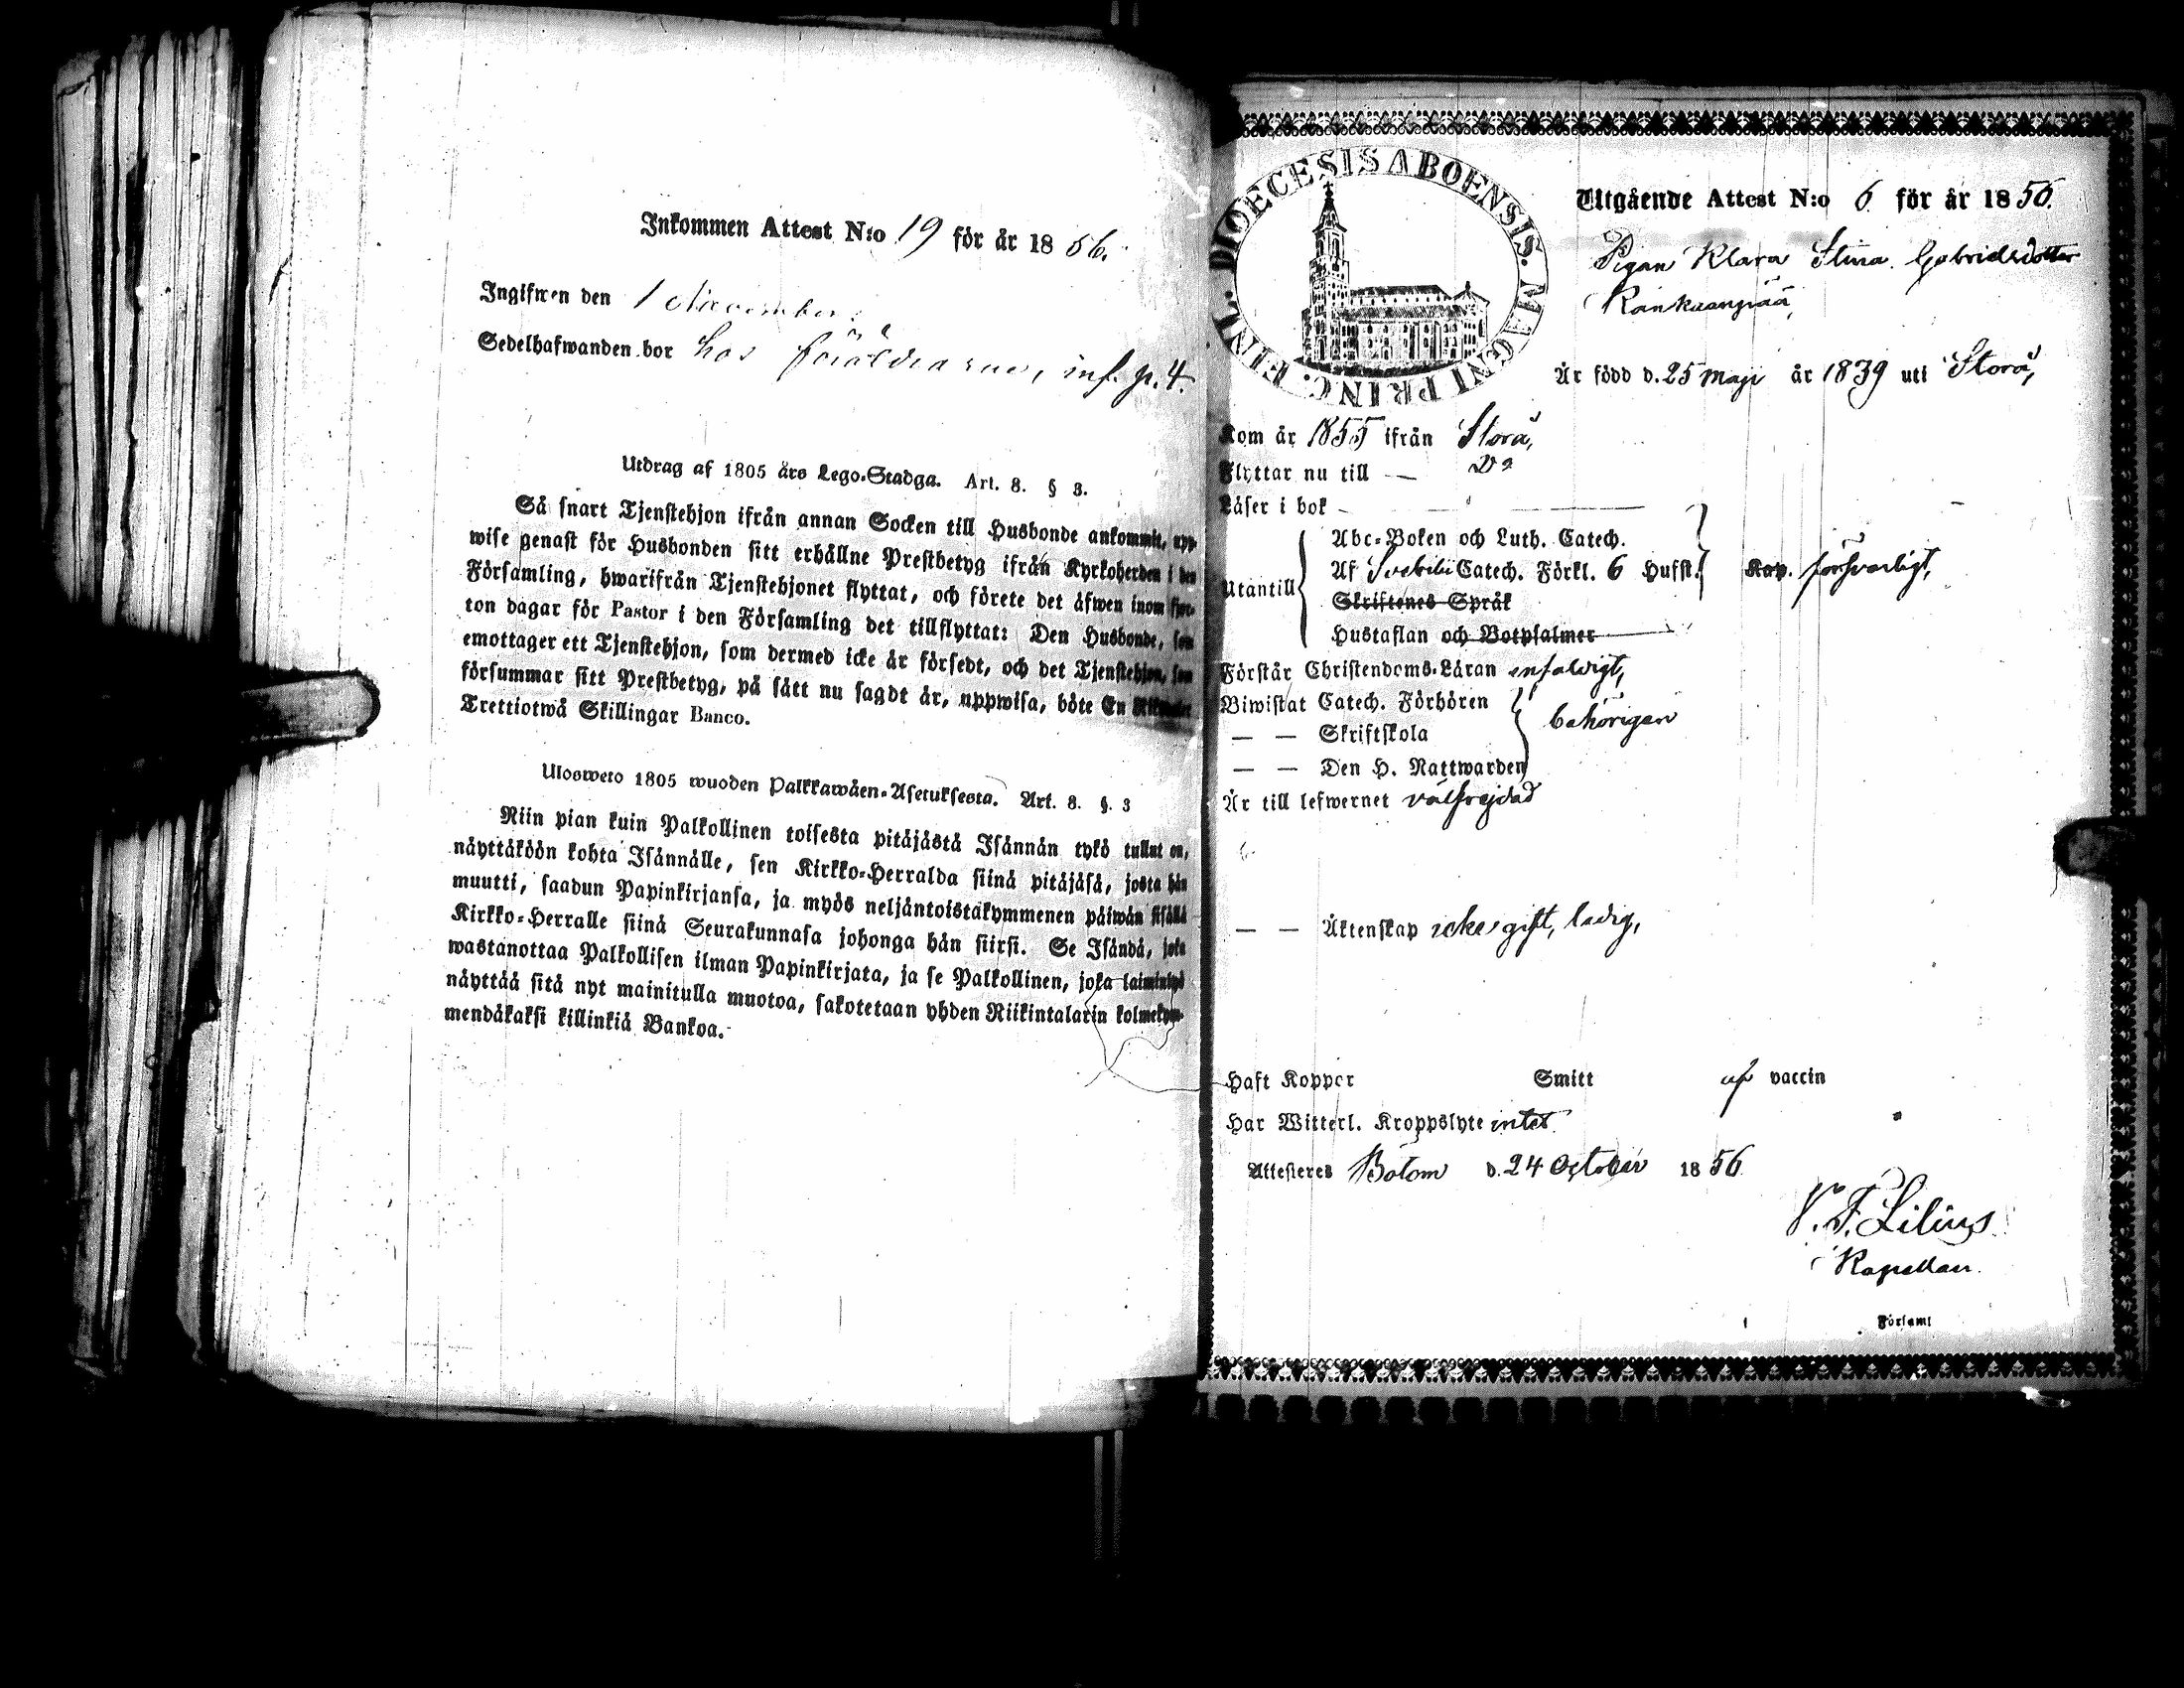 Inkommen Attest N:o 19 för år 1856.
Ingifwen den 1 November.
Sedelhafwanden bor hos föräldrarne, inf. p. 4.
Utdrag af 1805 års Lego-Stadga. Art. 8. § 3.
Så snart Tjenstehjon ifrån annan Socken till Husbonde ankommit, upp-
wise genast för Husbonden sitt erhållne Prestbetyg ifrån Kyrkoherden i den
Församling, hwarifrån Tjenstehjonet flyttat, och förete det äfwen inom fjor-
ton dagar för Pastor i den Församling det tillflyttat: Den Husbonde, som
emottager ett Tjenstehjon, som dermed icke är försedt, och det Tjenstehjon, som
försummar sitt Prestbetyg, på sätt nu sagdt är, uppwisa, böte En Riksdaler
Trettiotwå Skillingar Banco.
Ulosweto 1805 wuoden Palkkawäen-Asetuksesta. Art. 8. §. 3
Niin pian kuin Palkollinen toisesta pitäjästä Isännän tykö tullut on,
näyttäköön kohta Isännälle, sen Kirkko-Herralda siinä pitäjäsä, josta hän
muutti, saadun Papinkirjansa, ja myös neljäntoistakymmenen päiwän sisällä
Kirkko-Herralle siinä Seurakunnasa johonga hän siirsi. Se Isändä, joka
wastanottaa Palkollisen ilman Papinkirjata, ja se Palkollinen, joka laiminlyö
näyttää sitä nyt mainitulla muotoa, sakotetaan yhden Riikintalarin kolmekym-
mendäkaksi killinkiä Bankoa.
DIOECESIS ABOENSIS. MAGNI PRINC. FINL.
Utgående Attest N:o 6 för år 1856.
Pigan Klara Stina Gabrielsdotter
Rankuanpää,
Är född d. 25 maji år 1839 uti Storå,
Kom år 1855 ifrån Storå,
Flyttar nu till — Do
Läser i bok
Abc-Boken och Luth. Catech.
Utantill Af Svebili Catech. Förkl. 6 Hufst. Kap. försvarligt,
Skriftenes Språk
Hustaflan och Botpsalmer
Förstår Christendoms-Läran enfaldigt,
Biwistat Catech. Förhören
— — Skriftskola behörigen
— — Den H. Nattwarden
Är till lefwernet välfrejdad
— — Äktenskap icke gift, ledig,
Haft Koppor Smitt af vaccin
Har Witterl. Kroppslyte intet
Attesteres Bötom d. 24 October 1856
V. F. Lilius
Kapellan.
Församl